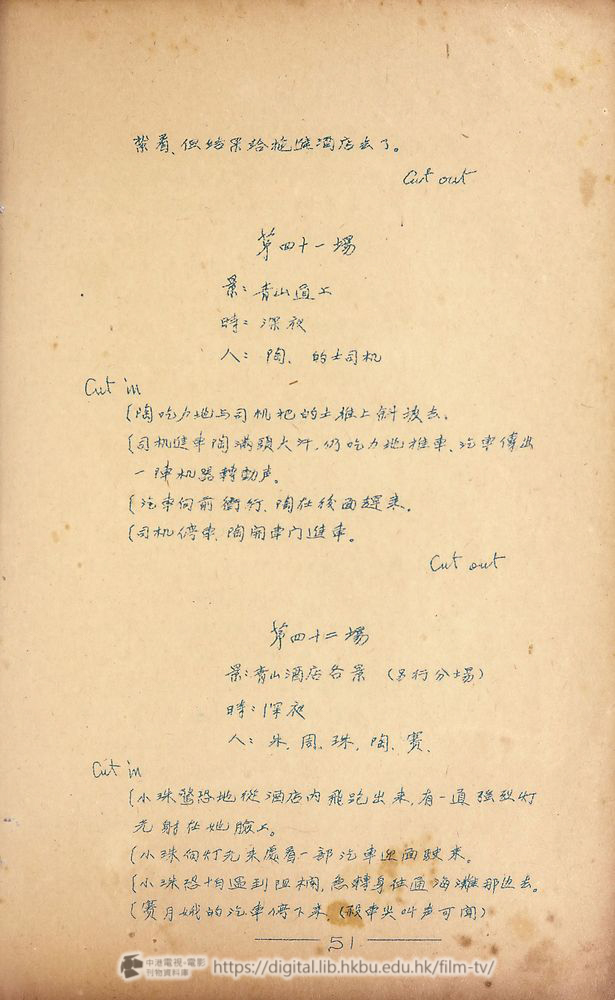 紮着、但結果給拖進酒店去了。
Cut out
第四十一場
景：青山道上
時：深夜
人：陶、的士司机
Cut in
{陶吃力地与司机把的士推上斜坡去、
{司机進車陶滿頭大汗，仍吃力地推車、汽車傳出
一陣机器轉動声。
{汽車向前衝行、陶在後面趕來。
{司机停車、陶開車门進車。
Cut out
第四十二場
景：青山酒店各景（另行分場）
時：深夜
人：朱、周、珠、陶、賽、
Cut in
{小珠驚恐地從酒店内飛跑出來，有一道強烈灯
光射在她臉上。
{小珠向灯光來處看一部汽車迎面駛來。
{小珠恐怕遇到阻桐，急轉身往通海灘那边去。
{賽月娥的汽車停下來，（殺車尖叫声可聞）
51
中港電視·電影
刊物資料庫
https://digital.lib.hkbu.edu.hk/film-tv/